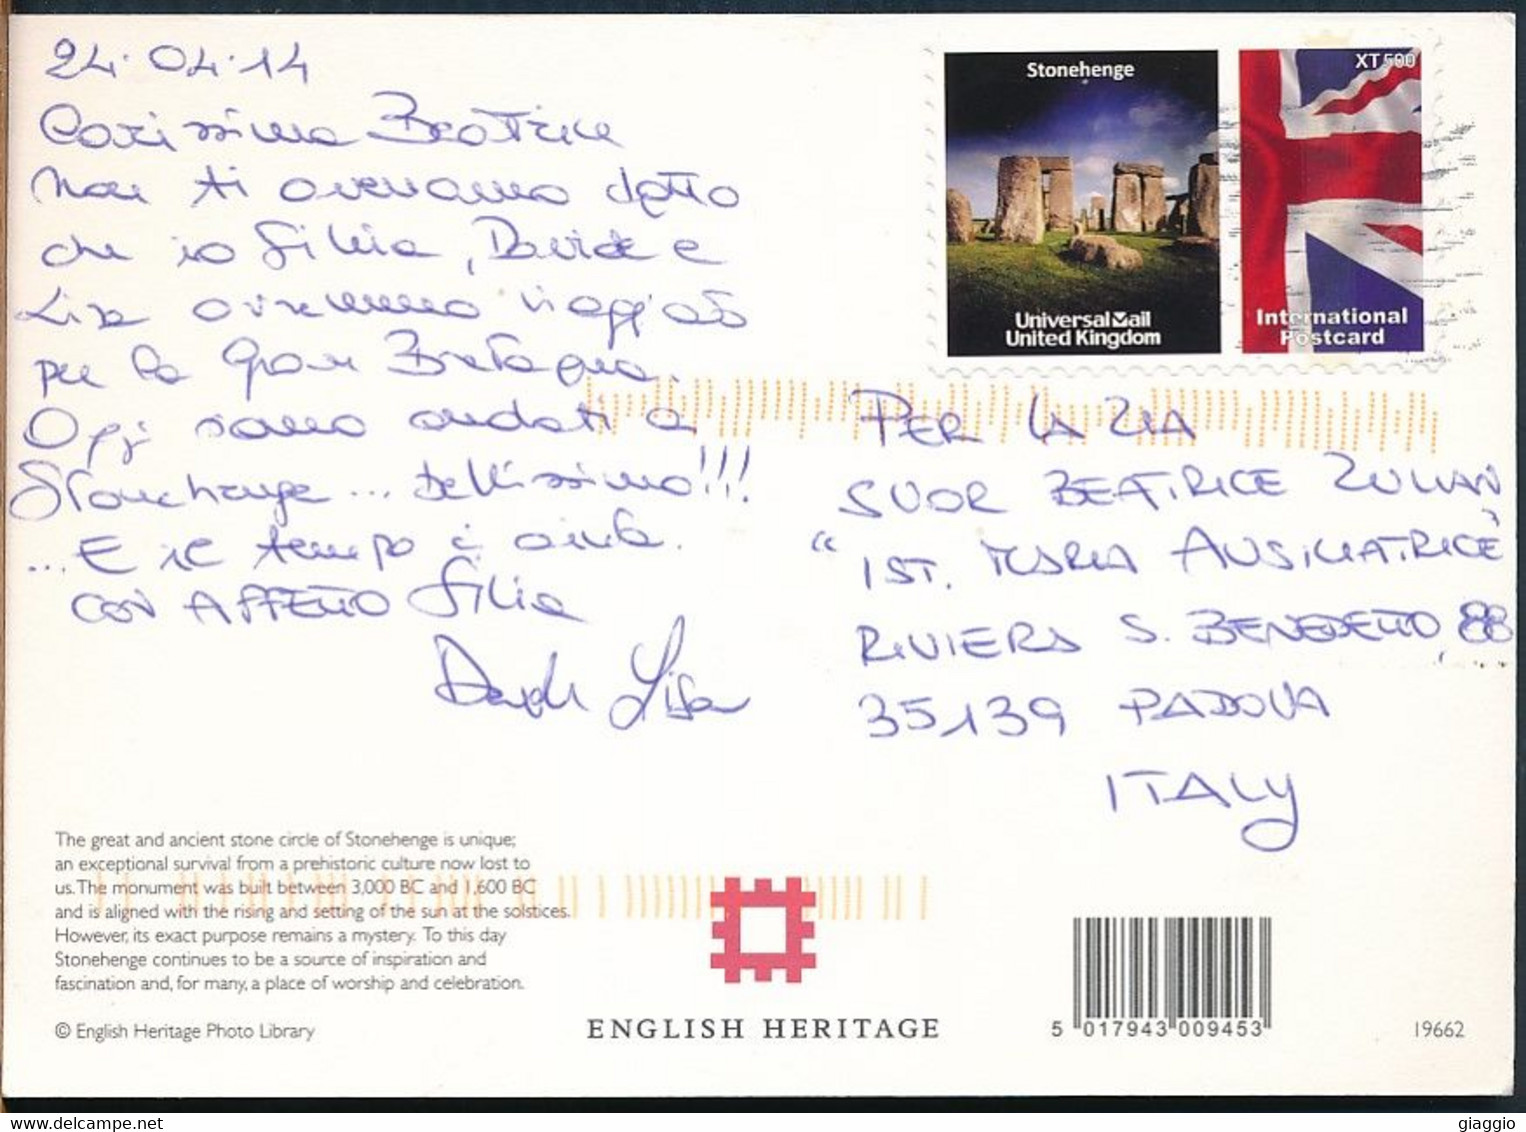 24.04.14
Carissima Beatrice
non ti avevamo detto
che io Silvia, Davide e
Lisa avremmo viaggiato
per la Gran Bretagna.
Oggi siamo andati a
Stonehenge... bellissimo!!!
... E il tempo ci aiuta.
CON AFFETTO Silvia
Davide Lisa
Stonehenge
UniversalMail
United Kingdom
XT500
International
Postcard
PER LA ZIA
SUOR BEATRICE ZULIAN
"IST. MARIA AUSILIATRICE"
RIVIERA S. BENEDETTO, 88
35139 PADOVA
ITALY
The great and ancient stone circle of Stonehenge is unique;
an exceptional survival from a prehistoric culture now lost to
us. The monument was built between 3,000 BC and 1,600 BC
and is aligned with the rising and setting of the sun at the solstices.
However, its exact purpose remains a mystery. To this day
Stonehenge continues to be a source of inspiration and
fascination and, for many, a place of worship and celebration.
© English Heritage Photo Library
ENGLISH HERITAGE
5 017943 009453
19662
delcampe.net
giaggio